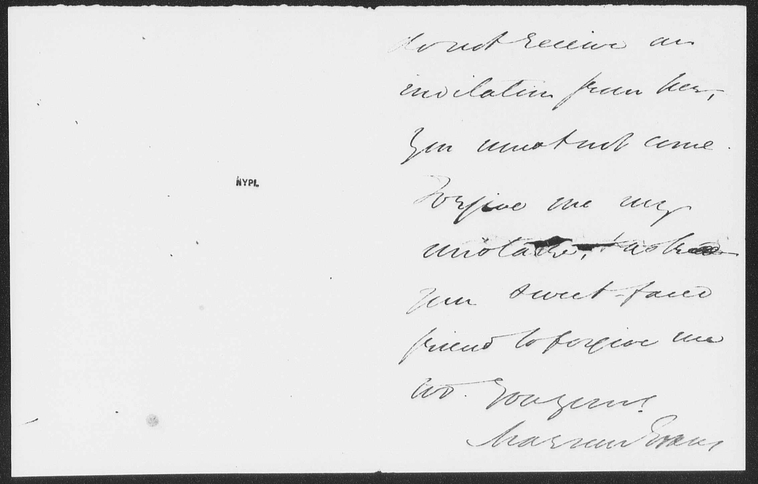 NYPL
do not receive an
invitation from her,
you must not come.
Forgive me my
mistake, & ask
your sweet-faced
friend to forgive me
too. Gonzeons